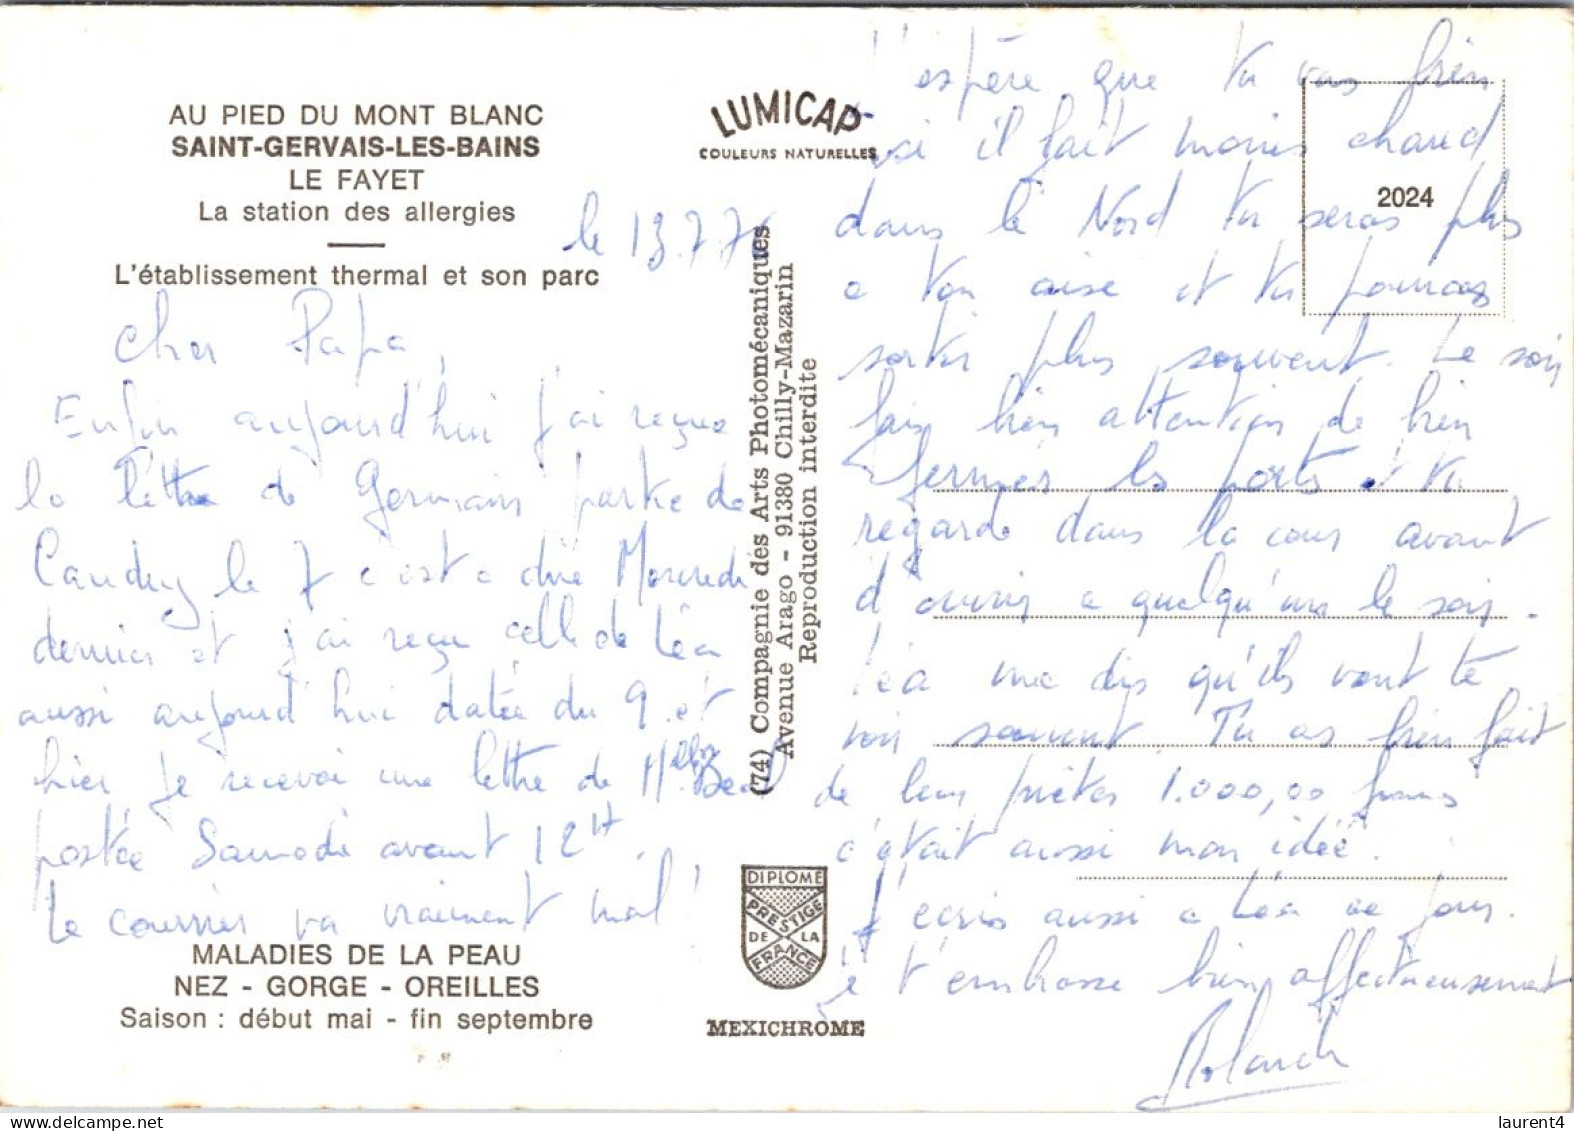 AU PIED DU MONT BLANC
SAINT-GERVAIS-LES-BAINS
LE FAYET
La station des allergies
L'établissement thermal et son parc
le 13.7.76
Cher Papa,
Enfin aujourd'hui j'ai reçue
la lettre de Germain partie de
Caudry le 7 c'est a dire Mercredi
dernier et j'ai reçu celle de Léa
aussi aujourd'hui datée du 9 et
hier je recevai une lettre de
postée Samedi avant 12H.
Le courrier va vraiment mal!
MALADIES DE LA PEAU
NEZ - GORGE - OREILLES
Saison : début mai - fin septembre
LUMICAP
COULEURS NATURELLES
(74) Compagnie des Arts Photomécaniques
Avenue Arago - 91380 Chilly-Mazarin
Reproduction interdite
DIPLOME
PRESTIGE
DE LA
FRANCE
MEXICHROME
2024
J'espère que tu vas bien
ici il fait moins chaud
dans le Nord tu seras plus
a ton aise et tu pourras
sortir plus souvent. Le soir
fais bien attention de bien
fermer les ports et tu
regarde dans la cour avant
d'ouvrir a quelqu'un le soir.
Léa me dis qu'ils vont te
voir souvent. Tu as bien fait
de leur prêter 1.000,00 francs
c'était aussi mon idée.
J'écris aussi a Léa ce jour.
je t'embrasse bien affectueusement
laurent4